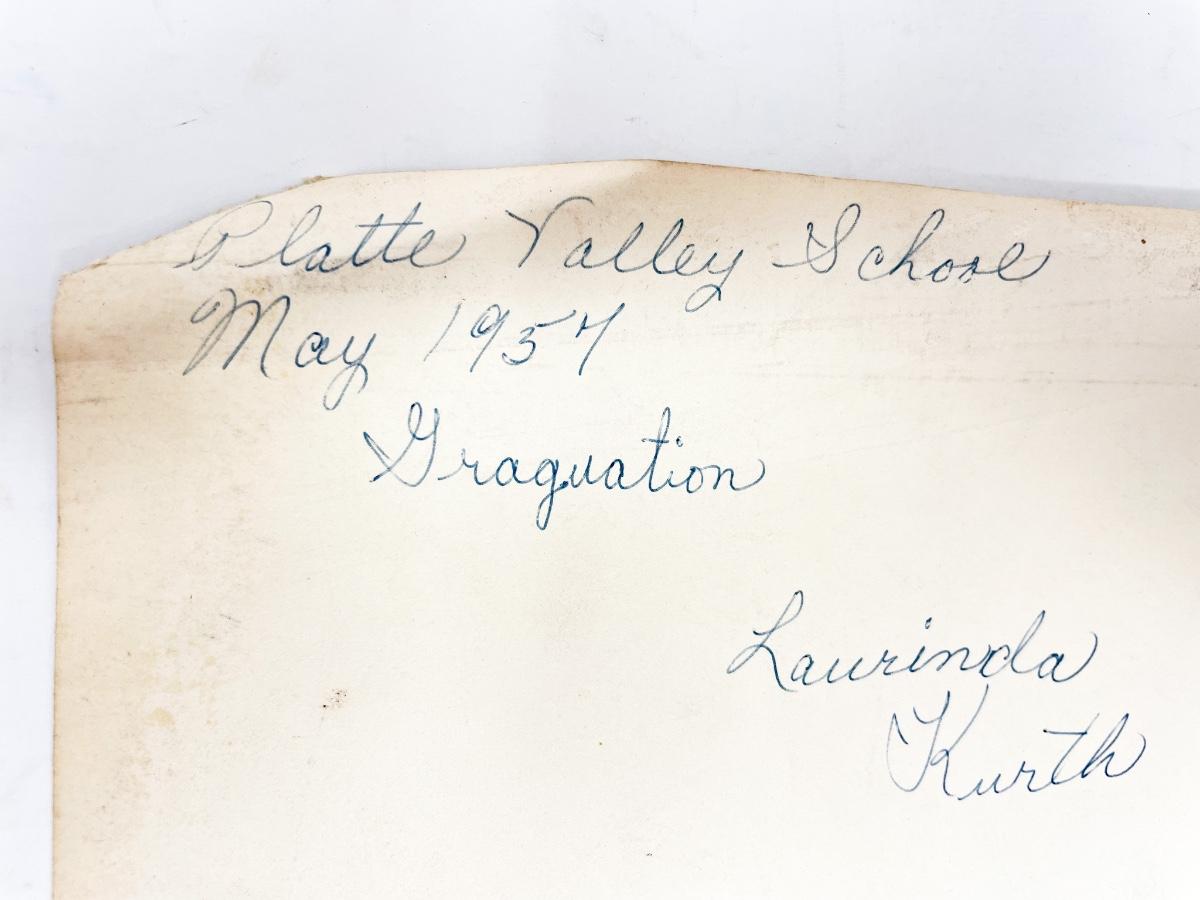 Platte Valley School
May 1957
Graguation
Laurinda
Kurth